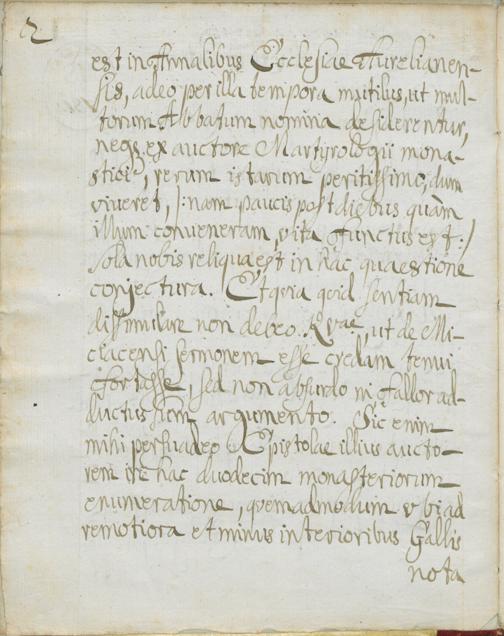 2
est in Annalibus Ecclesiae Aurelianen-
sis, adeo per illa tempora mutilus, ut mul-
torum Abbatum nomina desiderentur,
neqз ex auctore Martyrologii mona-
stici, verum istarum peritissimo, dum
viveret, /: nam paucis post diebus quam
illum conveneram, vita functus est :/
sola nobis reliqua est in hac quaestione
conjectura. Et quia quid sentiam
dissimulare non debeo. Quae, ut de Mi-
ciacensi sermonem esse credam tenui
fortasse, sed non absurdo ni fallor ad-
ductus sum argumento. Sic enim
mihi persuadeo Epistolae illius aucto-
rem in hac duodecim monasteriorum
enumeratione, quemadmodum ubi ad
remotiora et minus interioribus Gallis
nota